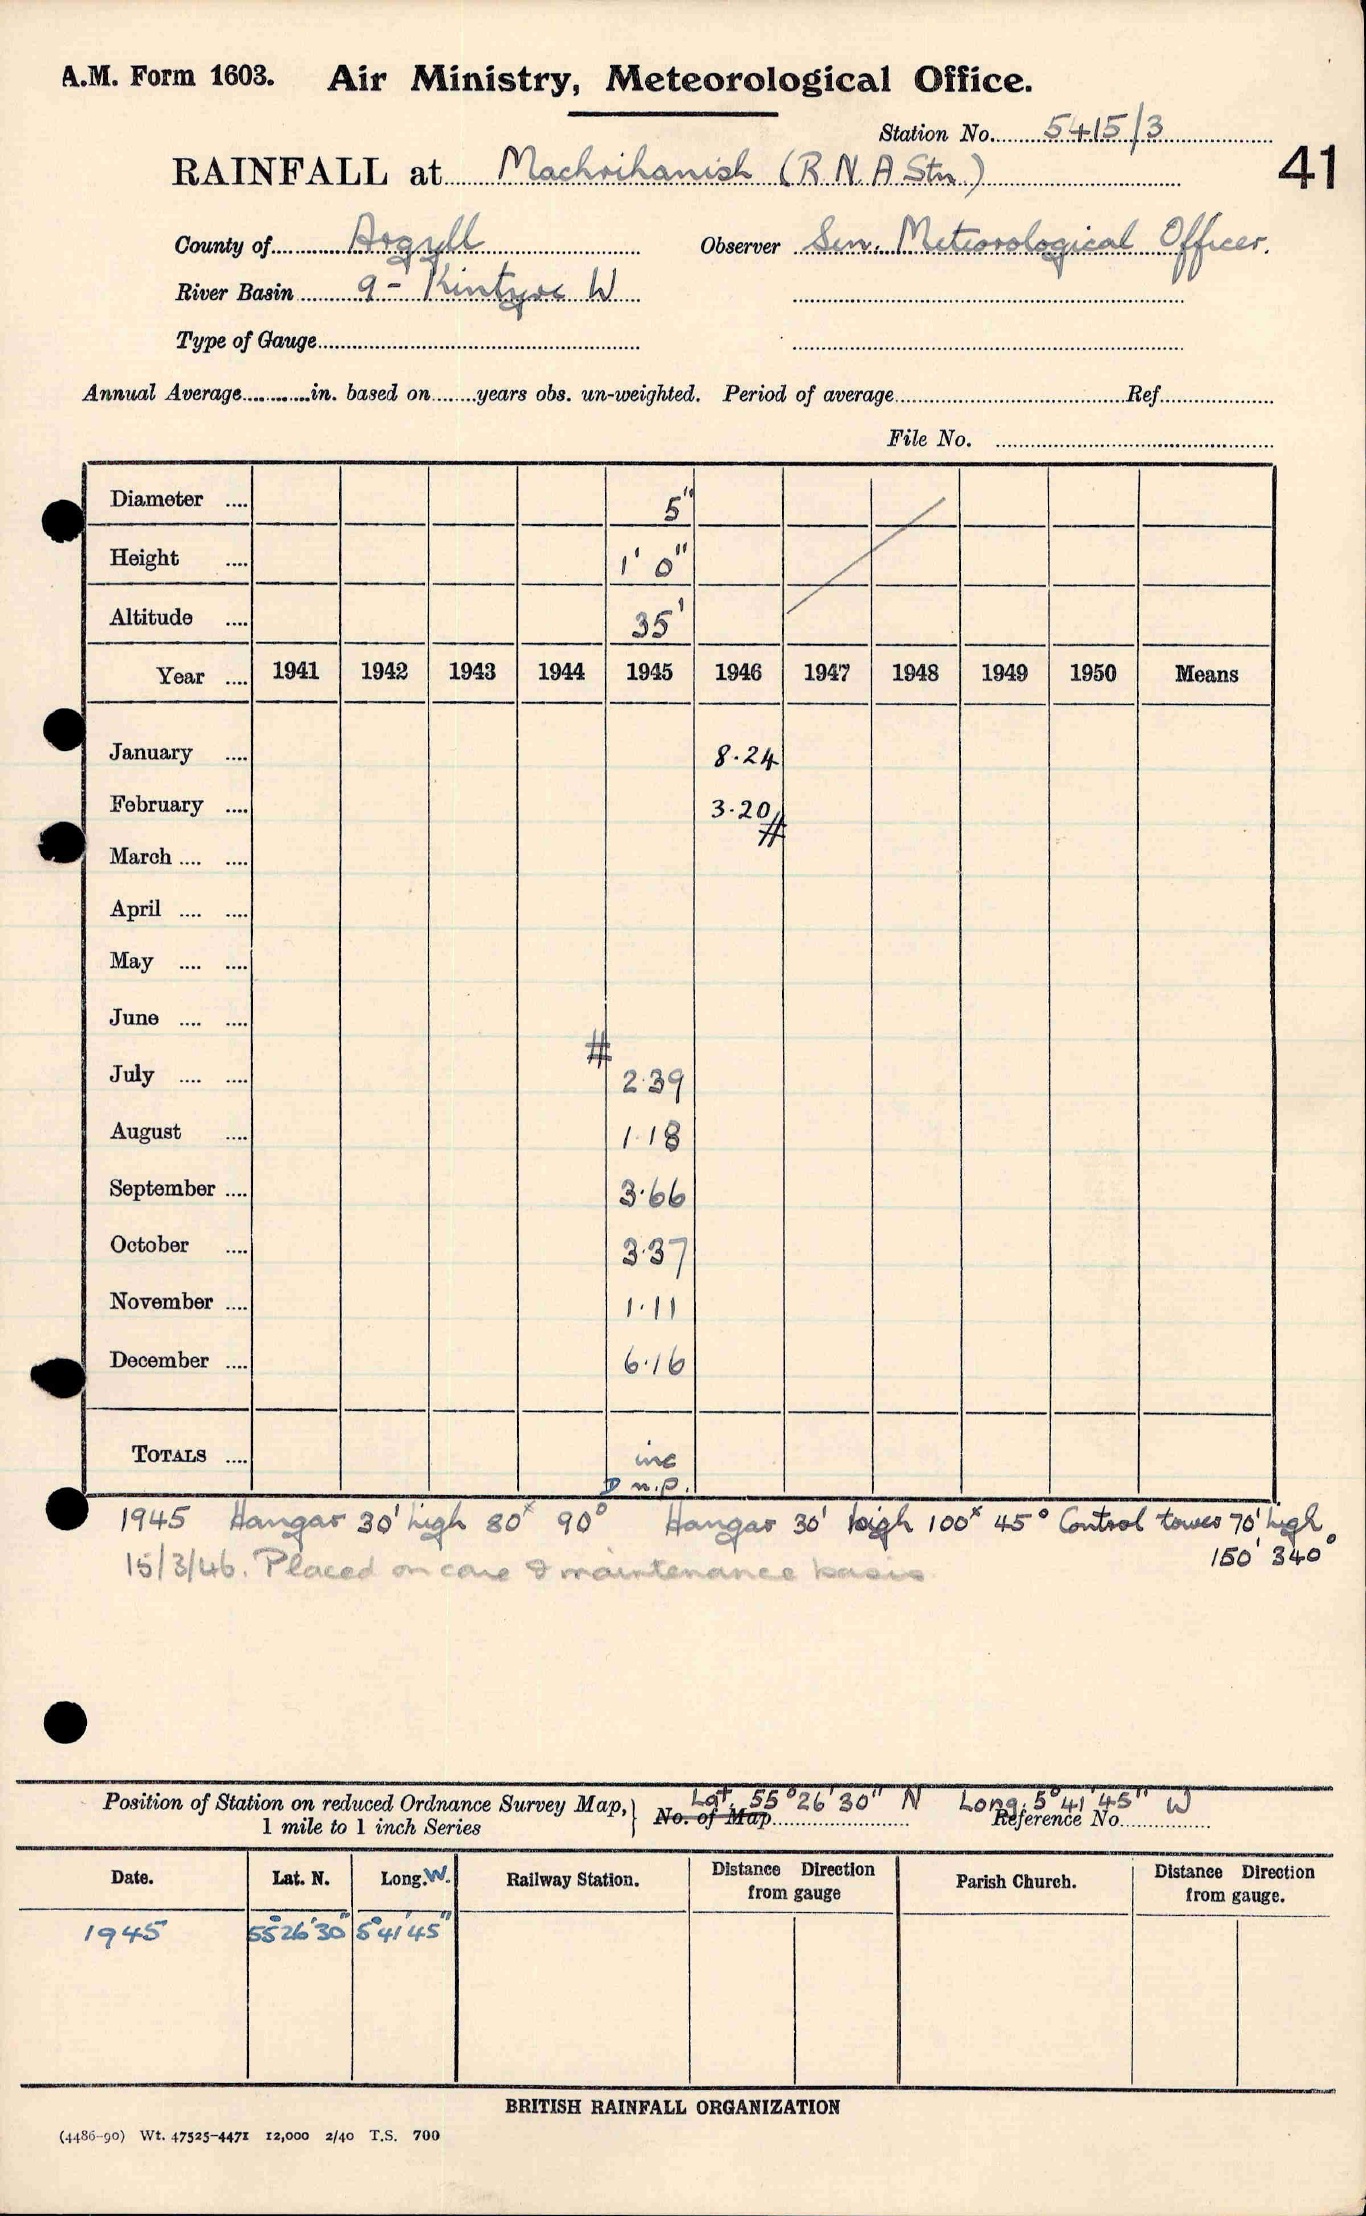 A.M. Form 1603. Air Ministry, Meteorological Office.
Station No. 5415/3
41
RAINFALL at Machrihanish (R.N.A Stn.)
County of Argyll Observer Sen. Meteorological Officer.
River Basin 9 - Kintyre W
Type of Gauge
Annual Average in. based on years obs. un-weighted. Period of average Ref
File No.
Diameter 5"
Height 1' 0"
Altitude 35'
Year 1941 1942 1943 1944 1945 1946 1947 1948 1949 1950 Means
January 8.24
February 3.20
#
March
April
May
June
#
July 2.39
August 1.18
September 3.66
October 3.37
November 1.11
December 6.16
TOTALS inc
D n.p.
1945 Hangar 30' high 80ˣ 90° Hangar 30' high 100ˣ 45° Control tower 70' high
150' 340°
15/3/46. Placed on care & maintenance basis
Lat. 55° 26' 30" N Long. 5° 41' 45" W
Position of Station on reduced Ordnance Survey Map, } No. of Map Reference No.
1 mile to 1 inch Series
Date. Lat. N. Long. W. Railway Station. Distance Direction from gauge Parish Church. Distance Direction from gauge.
1945 55° 26' 30" 5° 41' 45"
BRITISH RAINFALL ORGANIZATION
(4486-90) Wt. 47525-4471 12,000 2/40 T.S. 700